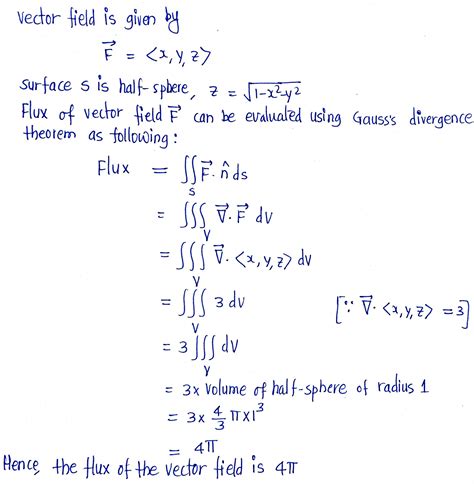 vector field is given by
F⃗ = <x, y, z>
surface s is half-sphere, z = √(1-x²-y²)
Flux of vector field F⃗ can be evaluated using Gauss's divergence
theorem as following:
Flux = ∬_S F⃗ · n̂ ds
= ∭_V ∇⃗ · F⃗ dv
= ∭_V ∇⃗ · <x, y, z> dv
= ∭_V 3 dv [∵ ∇⃗ · <x, y, z> = 3]
= 3 ∭_V dv
= 3x volume of half-sphere of radius 1
= 3x 4/3 π x 1³
= 4π
Hence, the flux of the vector field is 4π